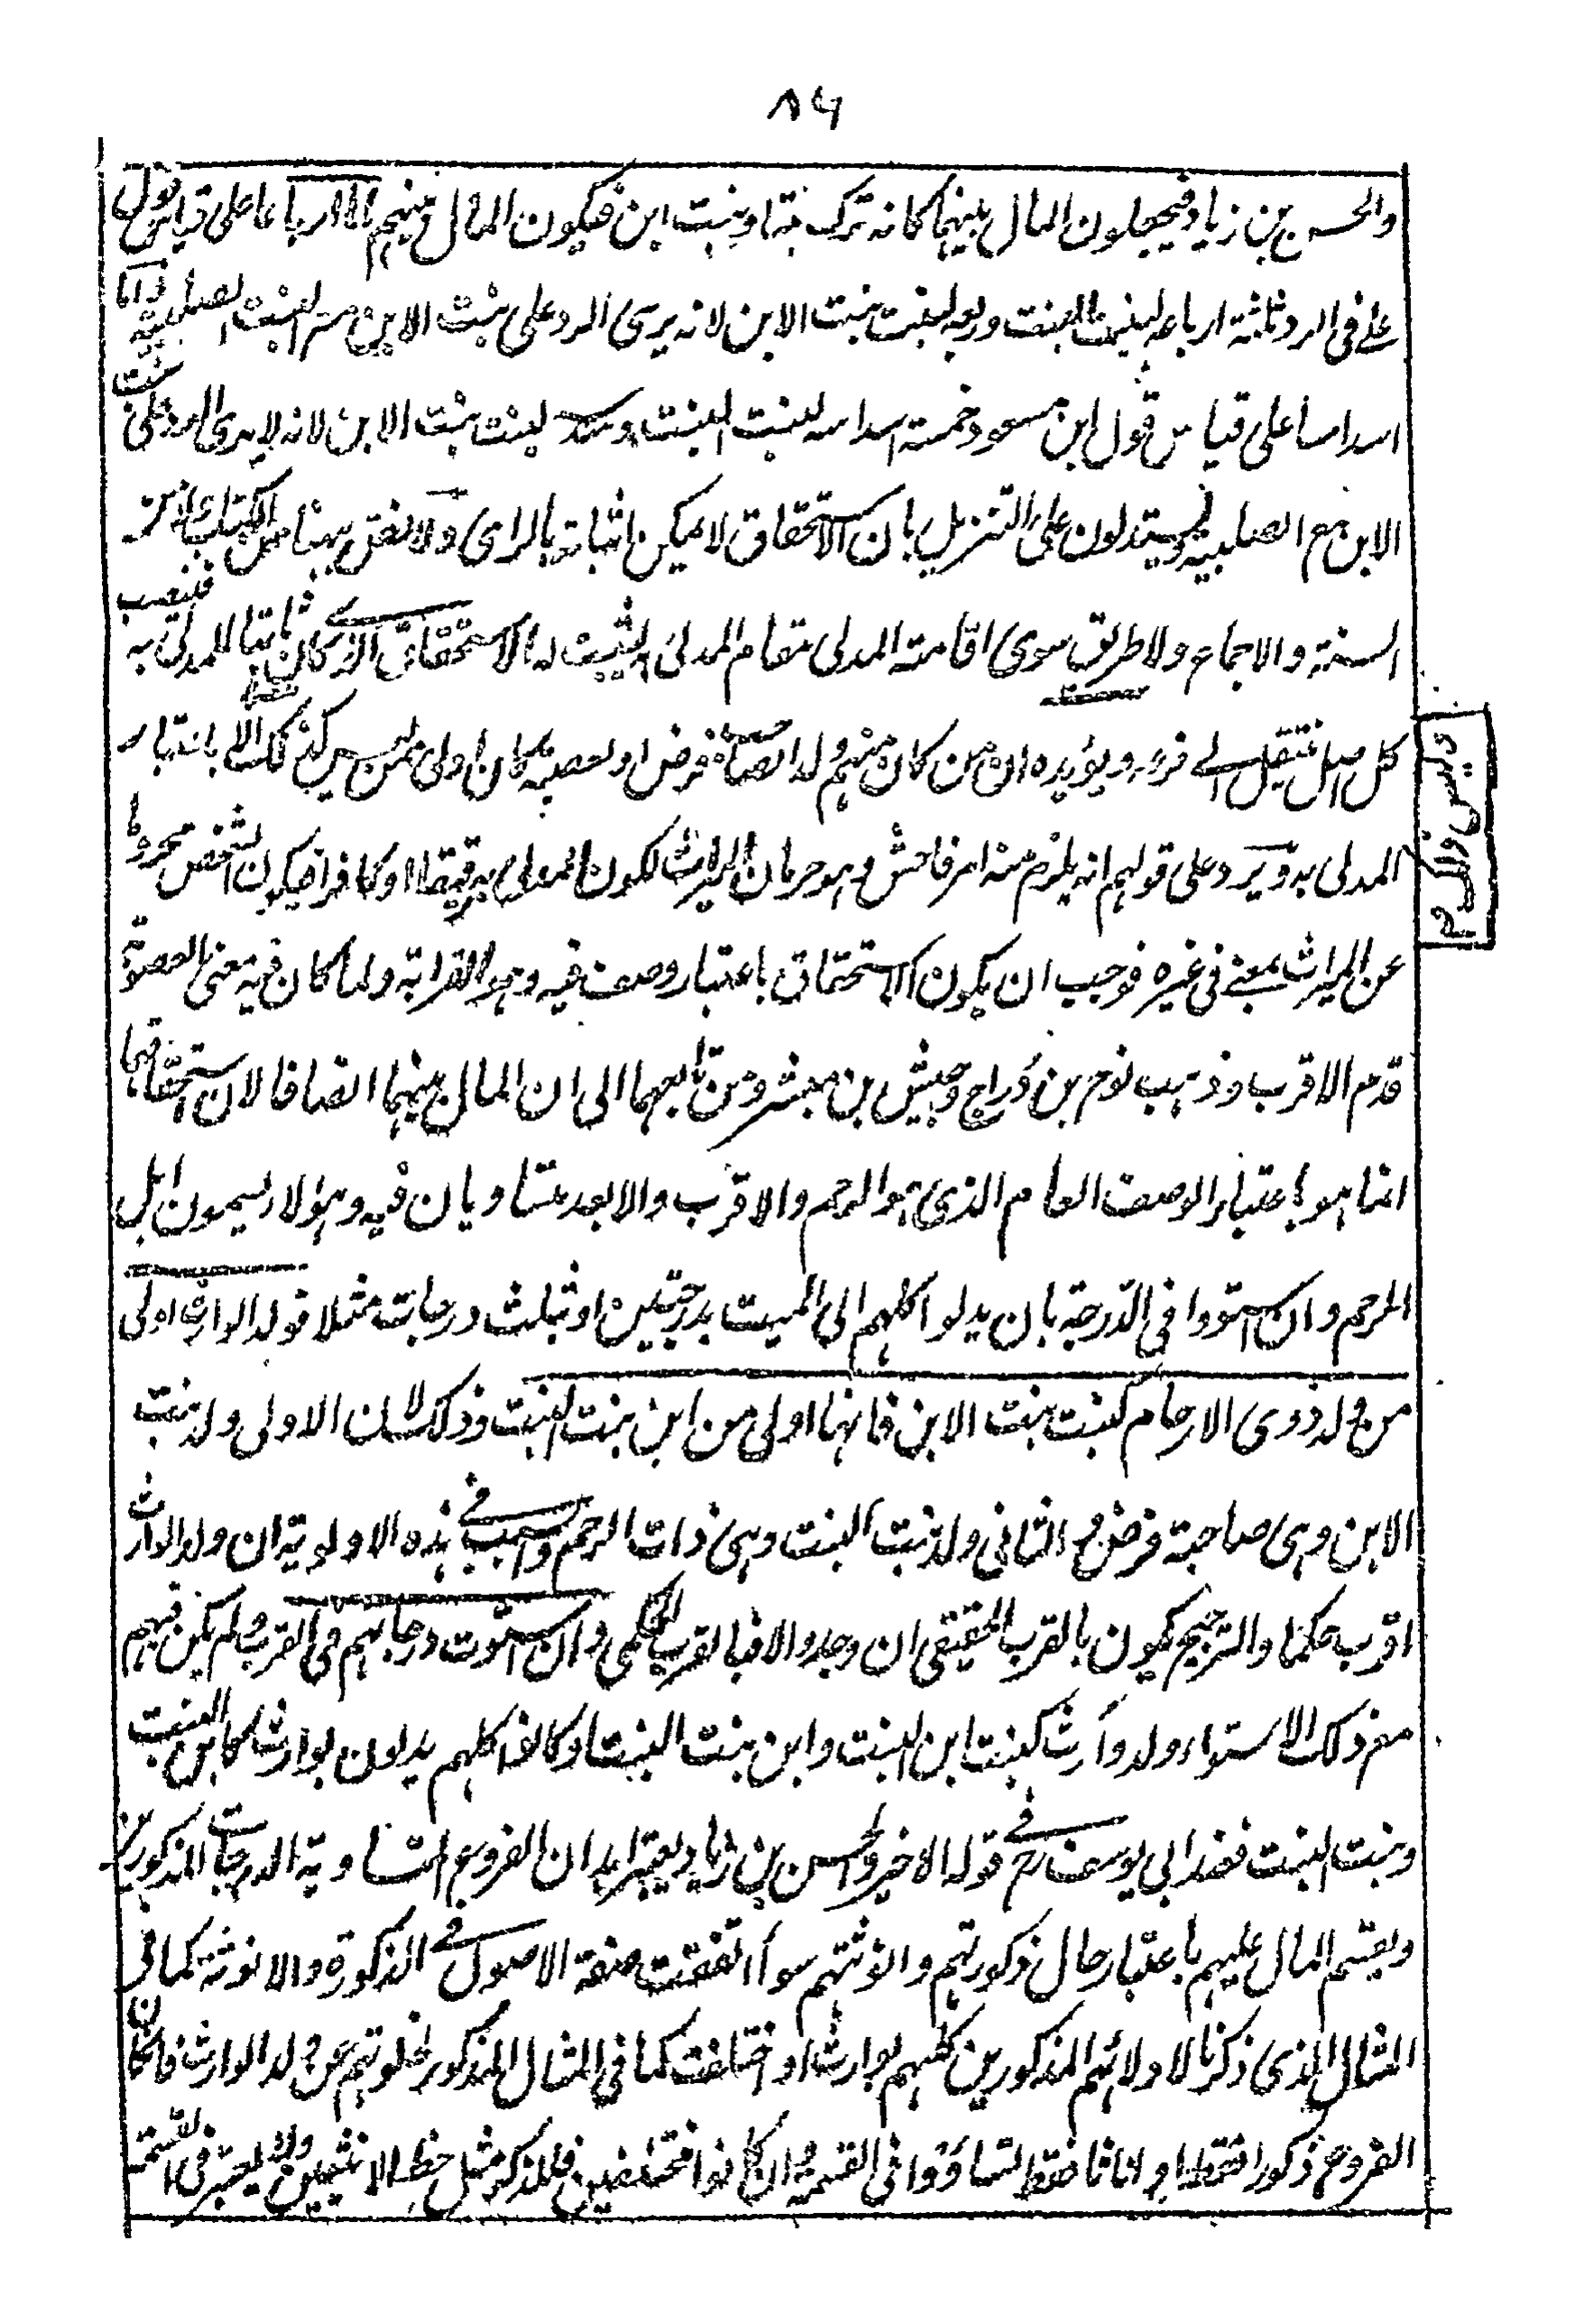 ٨٦
والحسن بن زياد فيجعلون المال بينهما كانه ترك بنتا وبنت ابن فيكون المال بينهم اما ارباعا على قياس قول
على فى الرد ثلثة ارباعه لبنت البنت وربعه لبنت بنت الابن لانه يرى الرد على بنت الابن مع البنت الصلبية واما
اسداسا على قياس قول ابن مسعود خمسة اسداسه لبنت البنت وسدسه لبنت بنت الابن لانه لا يرى الرد على بنت
الابن مع الصلبية ويستدلون على التنزيل بان الاستحقاق لا يمكن اثباته بالراى ولا نص ههنا من الكتاب او من
السنة والاجماع ولا طريق سوى اقامة المدلى مقام المدلى به ليثبت له الاستحقاق الذى كان ثابتا للمدلى به فنصيب
كل اصل ينتقل الى فرعه ويؤيده ان من كان منهم ولد صاحبة فرض او عصبة كان اولى ممن ليس كذلك الا باعتبار
المدلى به ويرد على قولهم انه يلزم منه امر فاحش وهو حرمان الميراث لكون المدلى به رقيقا او كافرا فيكون الشخص محروما
عن الميراث بمعنى فى غيره فوجب ان يكون الاستحقاق باعتبار وصف فيه وهو القرابة ولما كان فيه معنى العصوبة
قدم الاقرب وذهب نوح بن دراج وحبيش بن مبشر ومن تابعهما الى ان المال بينهما انصافا لان استحقاقهما
انما هو باعتبار الوصف العام الذى هو الرحم والاقرب والابعد متساويان فيه وهؤلاء يسمون اهل
الرحم وان استووا فى الدرجة بان يدلوا كلهم الى الميت بدرجتين او بثلث درجات مثلا فولد الوارث اولى
من ولد ذوى الارحام كبنت بنت الابن فانها اولى من ابن بنت البنت وذلك لان الاولى ولد بنت
الابن وهى صاحبة فرض والثانى ولد بنت البنت وهى ذات الرحم والسبب فى هذه الاولوية ان ولد الوارث
اقرب حكما والترجيح يكون بالقرب الحقيقى ان وجد والا فبالقرب الحكمى وان استوت درجاتهم فى القرب ولم يكن فيهم
مع ذلك الاستواء ولد وارث كبنت ابن البنت وابن بنت البنت او كانوا كلهم يدلون بوارث كابن البنت
وبنت البنت فعند ابى يوسف رح فى قوله الاخير والحسن بن زياد يعتبر ابدان الفروع المتساوية الدرجات المذكورين
ويقسم المال عليهم باعتبار حال ذكورتهم وانوثتهم سواء اتفقت صفة الاصول فى الذكورة والانوثة كما فى
المثال الذى ذكرنا لادلائهم المذكورين كلهم بوارث او اختلفت كما فى المثال المذكور لخلوتهم عن ولد الوارث فان كان
الفروع ذكورا فقط او اناثا فقط تساووا فى القسمة وان كانوا مختلفين فللذكر مثل حظ الانثيين ولا يعتبر فى القسمة
وليس ولد